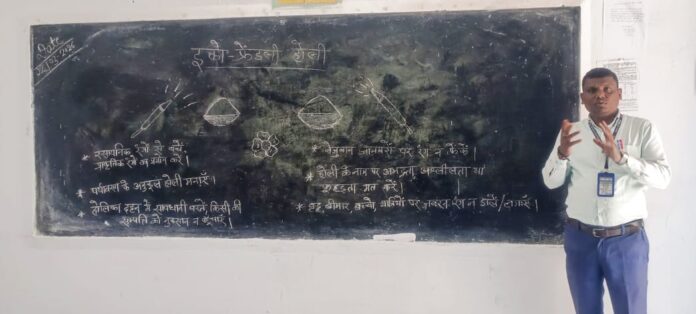 Date
इको-फ्रेंडली होली
* रसायनिक रंगों से बचें,
प्राकृतिक रंग का प्रयोग करें।
* पर्यावरण के अनुकूल होली मनाएँ।
* होलिका दहन में सावधानी बरतें किसी की
सम्पत्ति को नुकसान न पहुंचाएँ।
* बेजुबान जानवरों पर रंग न फेंकें।
* होली के नाम पर अभद्रता, अश्लीलता या
मत करें।
* बीमार, बच्चे, पर जबरन रंग न डालें/लगाएँ।